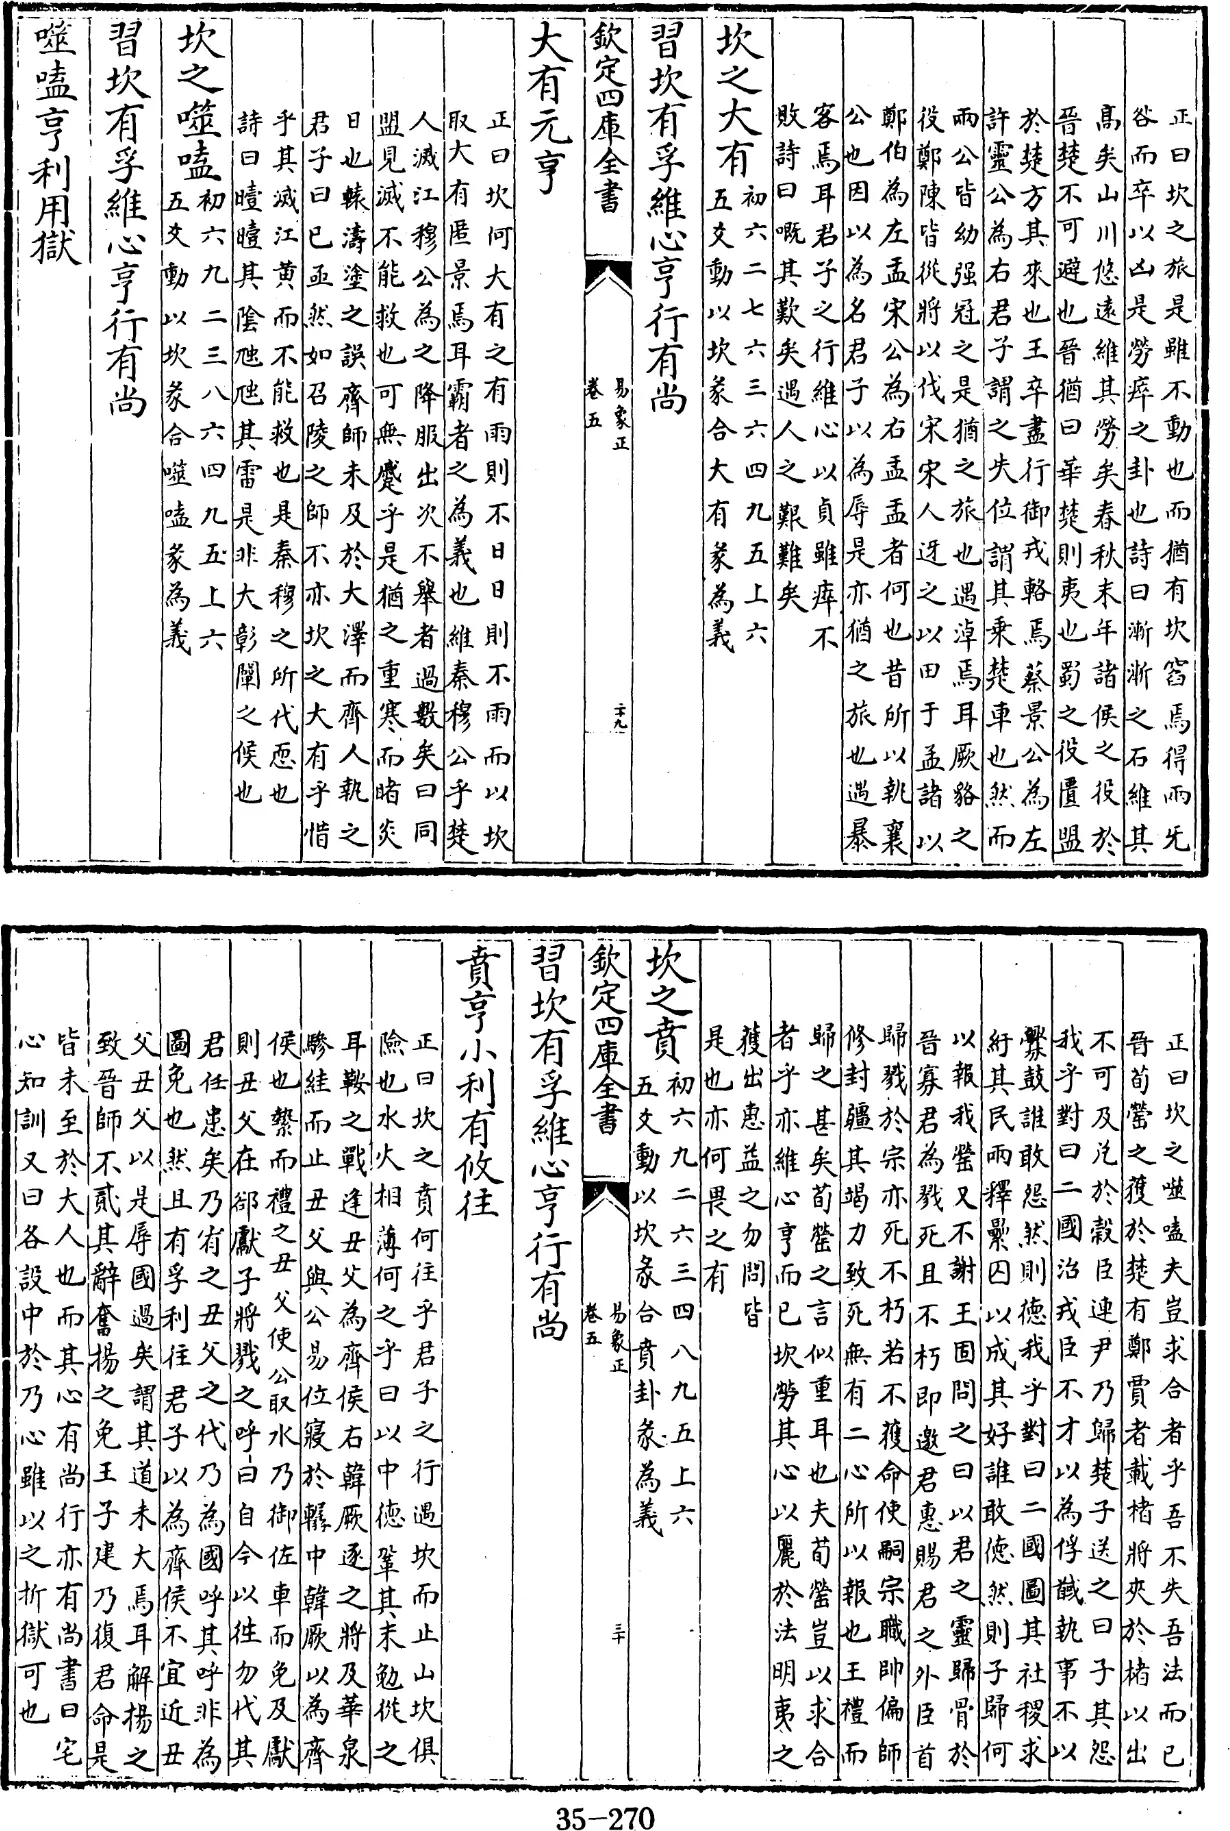 正曰坎之旅是雖不動也而猶有坎窞焉得雨旡
咎而卒以凶是勞瘁之卦也詩曰漸漸之石維其
髙矣山川悠遠維其勞矣春秋末年諸侯之役於
晉楚不可避也晉猶曰華楚則夷也蜀之役匱盟
於楚方其來也王卒盡行御戎輅焉蔡景公為左
許靈公為右君子謂之失位謂其乗楚車也然而
兩公皆幼强冠之是猶之旅也遇淖焉耳厥貉之
役鄭陳皆從將以伐宋宋人迓之以田于孟諸以
鄭伯為左盂宋公為右盂盂者何也昔所以執襄
公也因以為名君子以為辱是亦猶之旅也遇暴
客焉耳君子之行維心以貞雖瘁不
敗詩曰嘅其歎矣遇人之艱難矣
坎之大有 初六二七六三六四九五上六
五爻動以坎彖合大有彖為義
習坎有孚維心亨行有尚
欽定四庫全書
易象正
卷五
二十九
大有元亨
正曰坎何大有之有雨則不日日則不雨而以坎
取大有匿景焉耳霸者之為義也維秦穆公乎楚
人滅江穆公為之降服出次不舉者過數矣曰同
盟見滅不能救也可無蹙乎是猶之重寒而睹炎
日也轅濤塗之誤齊師未及於大澤而齊人執之
君子曰已亟然如召陵之師不亦坎之大有乎惜
乎其滅江黃而不能救也是秦穆之所代恧也
詩曰曀曀其陰虺虺其雷是非大彰闡之候也
坎之噬嗑 初六九二三八六四九五上六
五爻動以坎彖合噬嗑彖為義
習坎有孚維心亨行有尚
噬嗑亨利用獄
正曰坎之噬嗑夫豈求合者乎吾不失吾法而已
晉荀罃之獲於楚有鄭賈者載楮將夾於楮以出
不可及兊於穀臣連尹乃歸楚子送之曰子其怨
我乎對曰二國治戎臣不才以為俘馘執事不以
釁鼓誰敢怨然則德我乎對曰二國圖其社稷求
紓其民兩釋纍囚以成其好誰敢德然則子歸何
以報我罃又不謝王固問之曰以君之靈歸骨於
晉寡君為戮死且不朽即邀君惠賜君之外臣首
歸戮於宗亦死不朽若不獲命使嗣宗職帥偏師
修封疆其竭力致死無有二心所以報也王禮而
歸之甚矣荀罃之言似重耳也夫荀罃豈以求合
者乎亦維心亨而已坎勞其心以麗於法明夷之
獲出惠益之勿問皆
是也亦何畏之有
坎之賁 初六九二六三四八九五上六
五爻動以坎彖合賁卦彖為義
欽定四庫全書
易象正
卷五
三十
習坎有孚維心亨行有尚
賁亨小利有攸往
正曰坎之賁何往乎君子之行遇坎而止山坎俱
險也水火相薄何之乎曰以中德鞏其末勉從之
耳鞌之戰逢丑父為齊侯右韓厥逐之將及華泉
驂絓而止丑父與公易位寢於轏中韓厥以為齊
侯也縶而禮之丑父使公取水乃御佐車而免及獻
則丑父在郤獻子將戮之呼曰自今以往勿代其
君任患矣乃宥之丑父之代乃為國呼其呼非為
圖免也然且有孚利往君子以為齊侯不宜近丑
父丑父以是辱國過矣謂其道未大焉耳解揚之
致晉師不貳其辭奮揚之免王子建乃復君命是
皆未至於大人也而其心有尚行亦有尚書曰宅
心知訓又曰各設中於乃心雖以之折獄可也
35-270